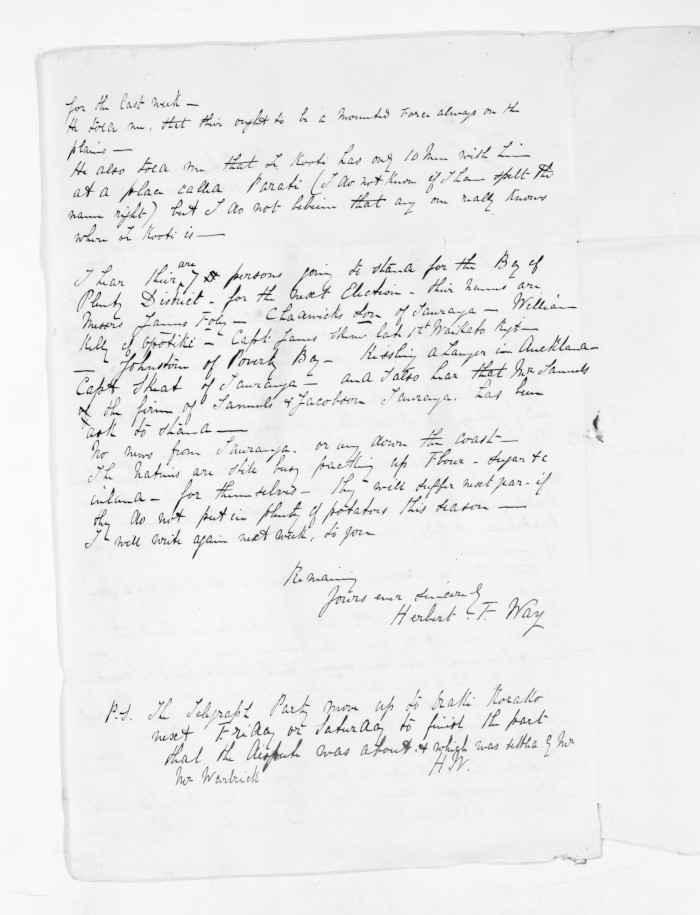 for the last week —
He told me, that their ought to be a Mounted Force always on the
plains —
He also told me that Te Kooti has only 10 Men with him
at a place called Parati (I do not know if I have spelt the
name right) but I do not believe that any one really knows
where Te Kooti is —
I hear their are 7 persons going to stand for the Bay of
Plenty District - for the next Election - their names are
Messrs James Foley - Chadwick of Tauranga - William
Kelly of Opotiki - Capt. James late 1st Waikato Regt -
— Johnstone of Poverty Bay - Kissling a Lawyer in Auckland -
Capt Skeat of Tauranga - and I also hear that Mr Samuels
of the firm of Samuels & Jacobson Tauranga. has been
ask to stand —
No news from Tauranga. or any down the coast —
The Natives are still busy packing up Flour - sugar &c
inland - for themselves - they will suffer next year - if
they do not put in plenty of potatoes this season —
I will write again next week, to you
Remaining
Yours ever sincerely
Herbert . F. Way
P.S. The Telegraph Party move up to Oraki Korako
next Friday or Saturday to finish the part
that the dispute was about & which was settled by Mr
Mr Werbrick H W.